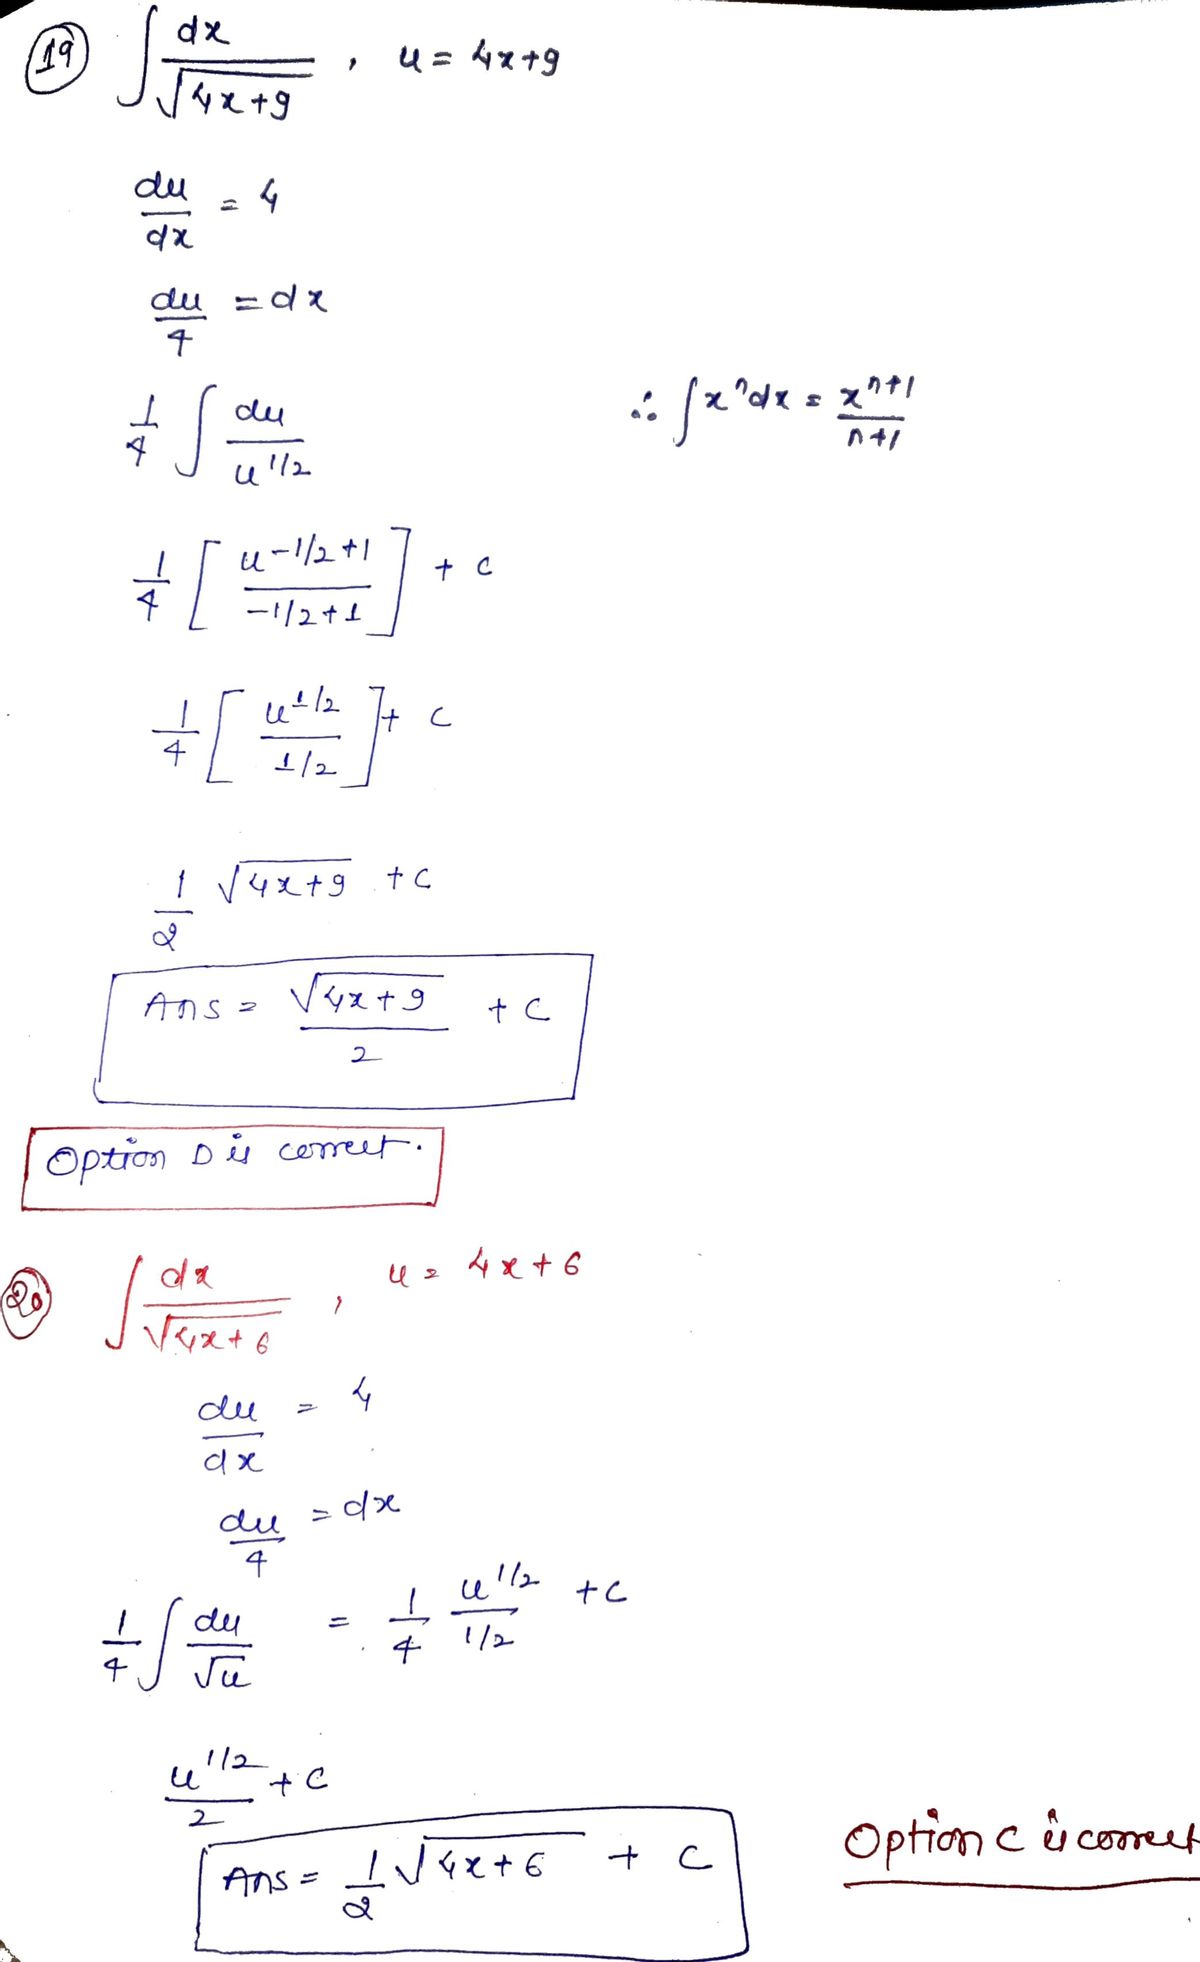 19 ∫ dx/√(4x+9) , u = 4x+9
du/dx = 4
du/4 = dx
1/4 ∫ du/u^(1/2) ∴ ∫ x^n dx = x^(n+1)/(n+1)
1/4 [ u^(-1/2+1)/(-1/2+1) ] + c
1/4 [ u^(1/2)/(1/2) ] + c
1/2 √(4x+9) + c
Ans = √(4x+9)/2 + c
Option D is correct.
20 ∫ dx/√(4x+6) , u = 4x+6
du/dx = 4
du/4 = dx
1/4 ∫ du/√u = 1/4 u^(1/2)/(1/2) + c
u^(1/2)/2 + c
Ans = 1/2 √(4x+6) + c
Option C is correct